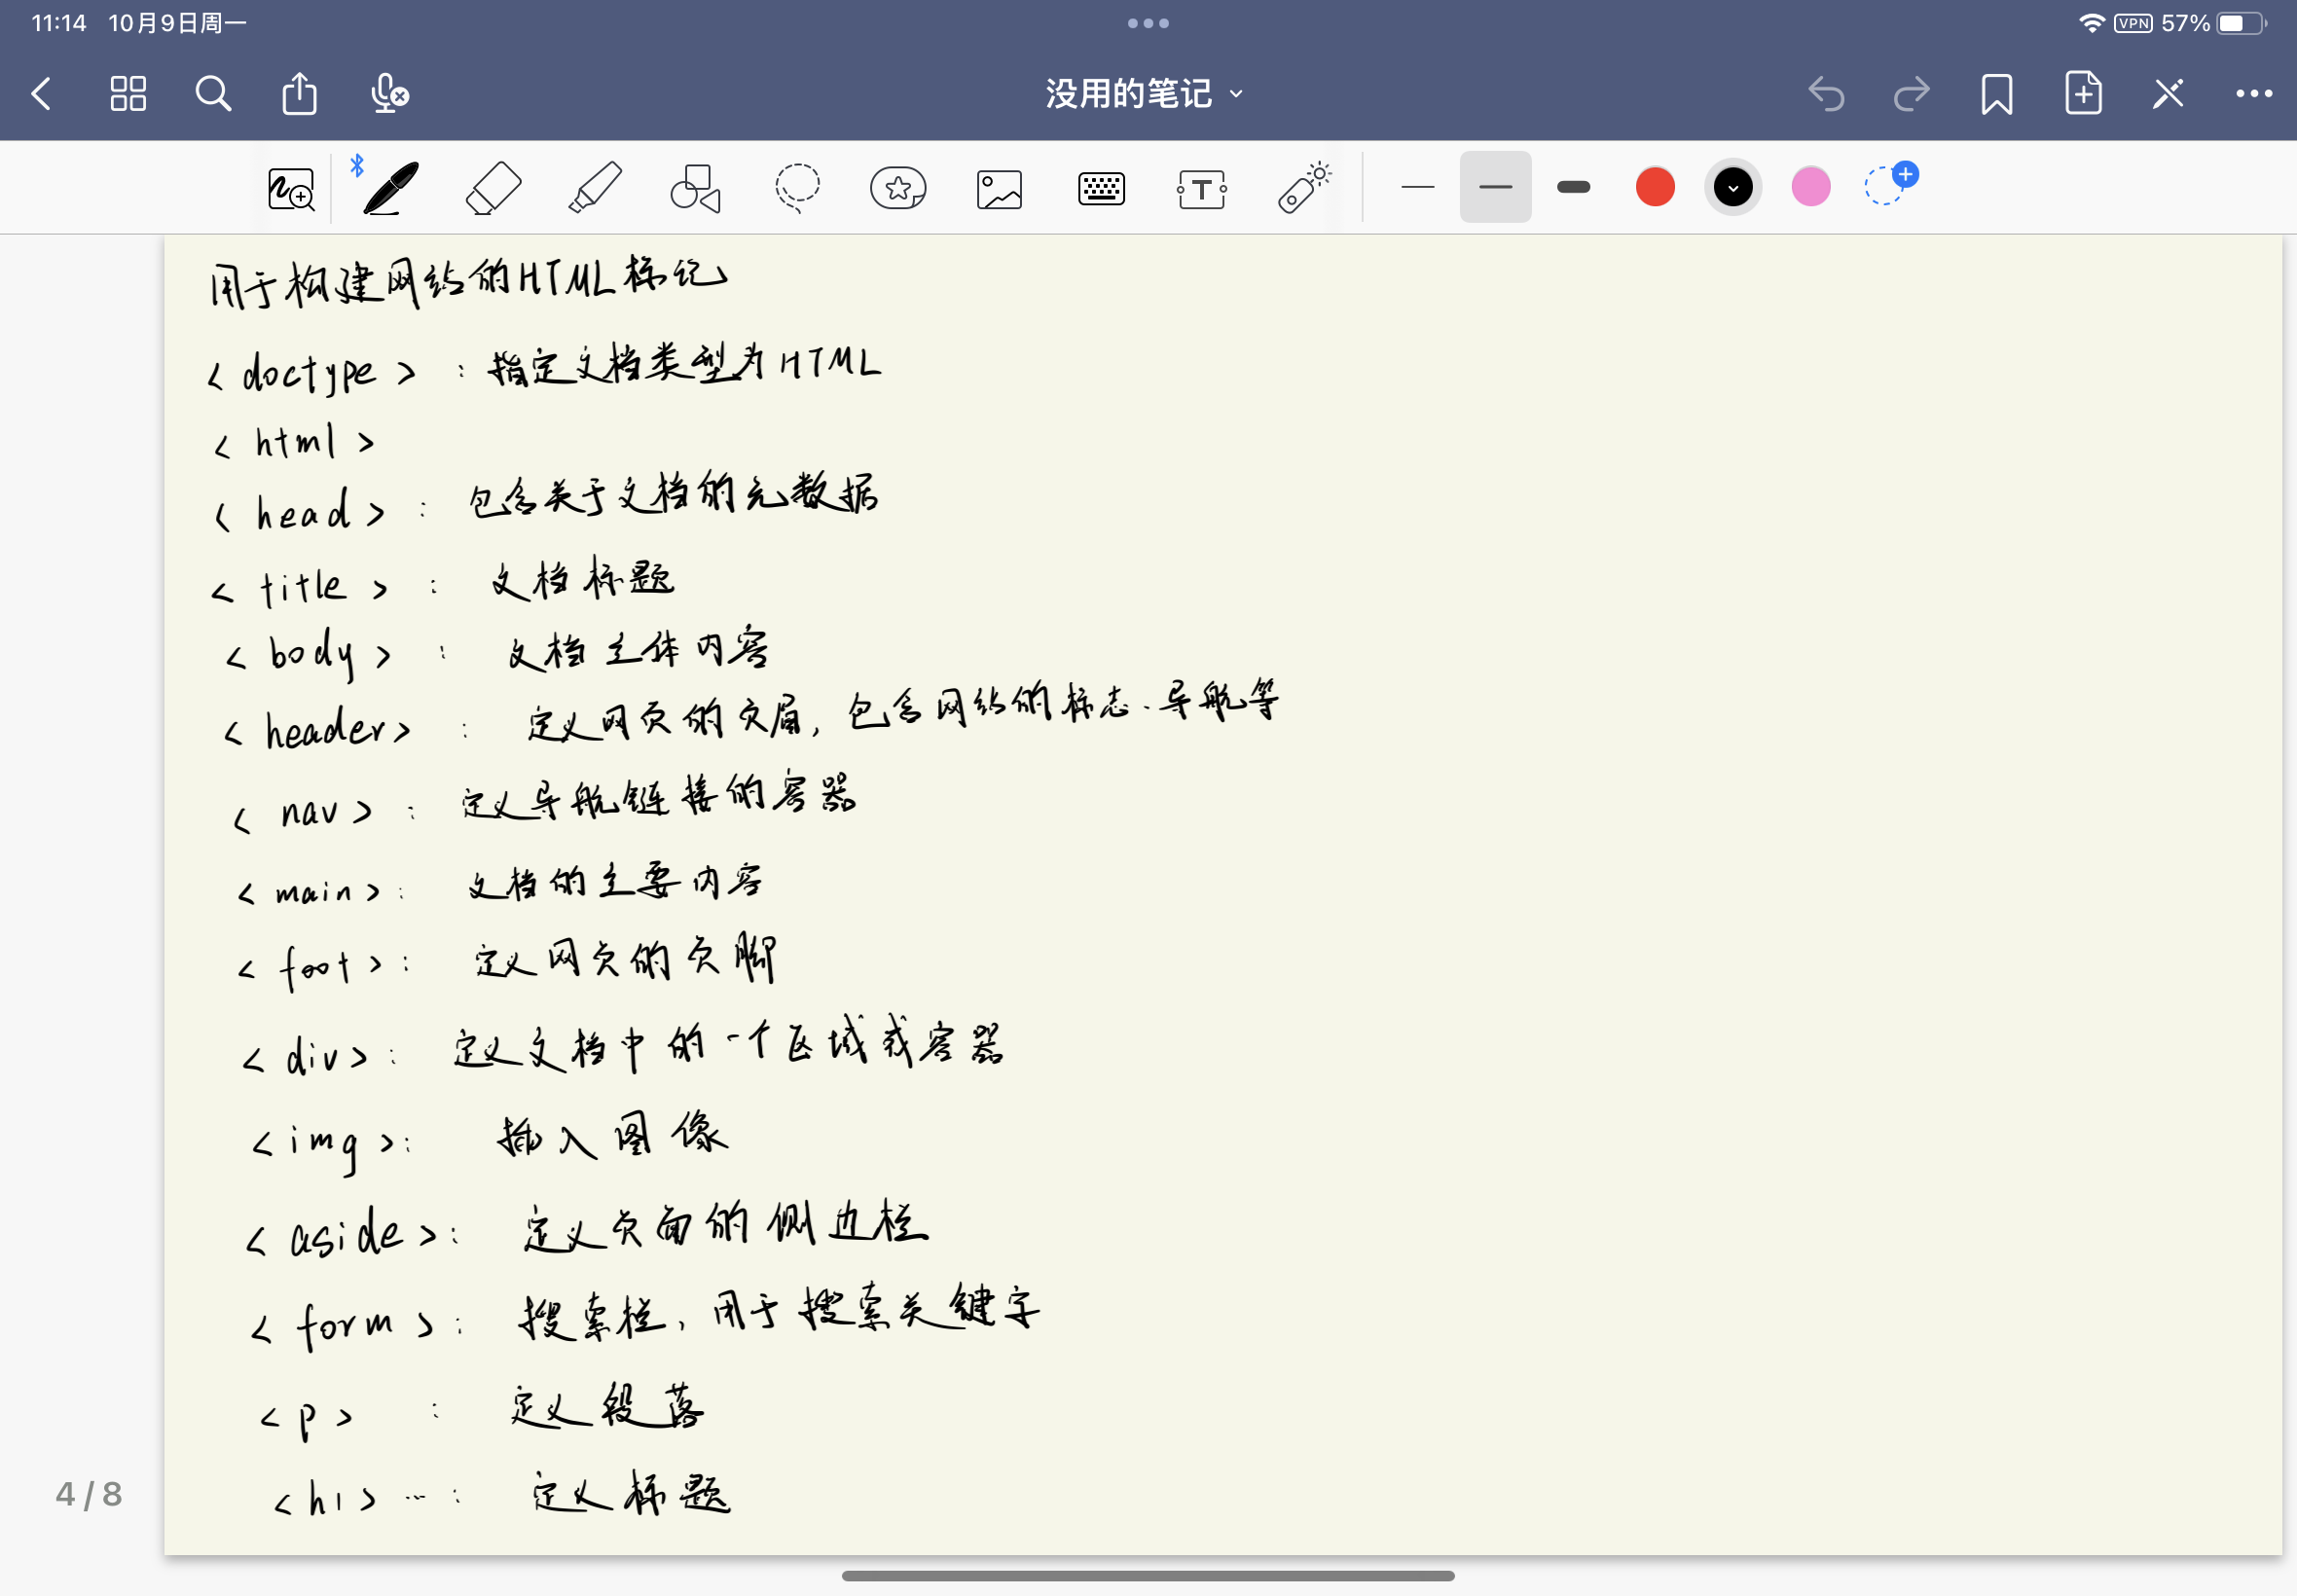 11:14 10月9日周一
VPN 57%
没用的笔记
T
用于构建网站的HTML标记
<doctype> : 指定文档类型为HTML
<html>
<head> : 包含关于文档的元数据
<title> : 文档标题
<body> : 文档主体内容
<header> : 定义网页的页眉, 包含网站的标志、导航等
<nav> : 定义导航链接的容器
<main> : 文档的主要内容
<foot> : 定义网页的页脚
<div> : 定义文档中的一个区域或容器
<img> : 插入图像
<aside> : 定义页面的侧边栏
<form> : 搜索栏, 用于搜索关键字
<p> : 定义段落
<h1> … : 定义标题
4 / 8